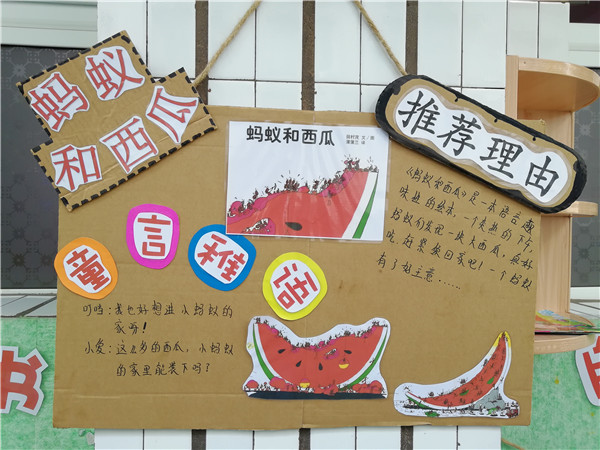 蚂蚁
和西瓜
蚂蚁和西瓜
推荐理由
《蚂蚁和西瓜》是一本语言趣
味的绘本,一个炎热的下午,
蚂蚁们发现一块大西瓜,真好
吃,赶紧搬回家吧!一个蚂蚁
有了好主意......
童言稚语
叮当:我也好想进小蚂蚁的
家呀!
小爱:这么多的西瓜,小蚂蚁
的家里能装下吗?